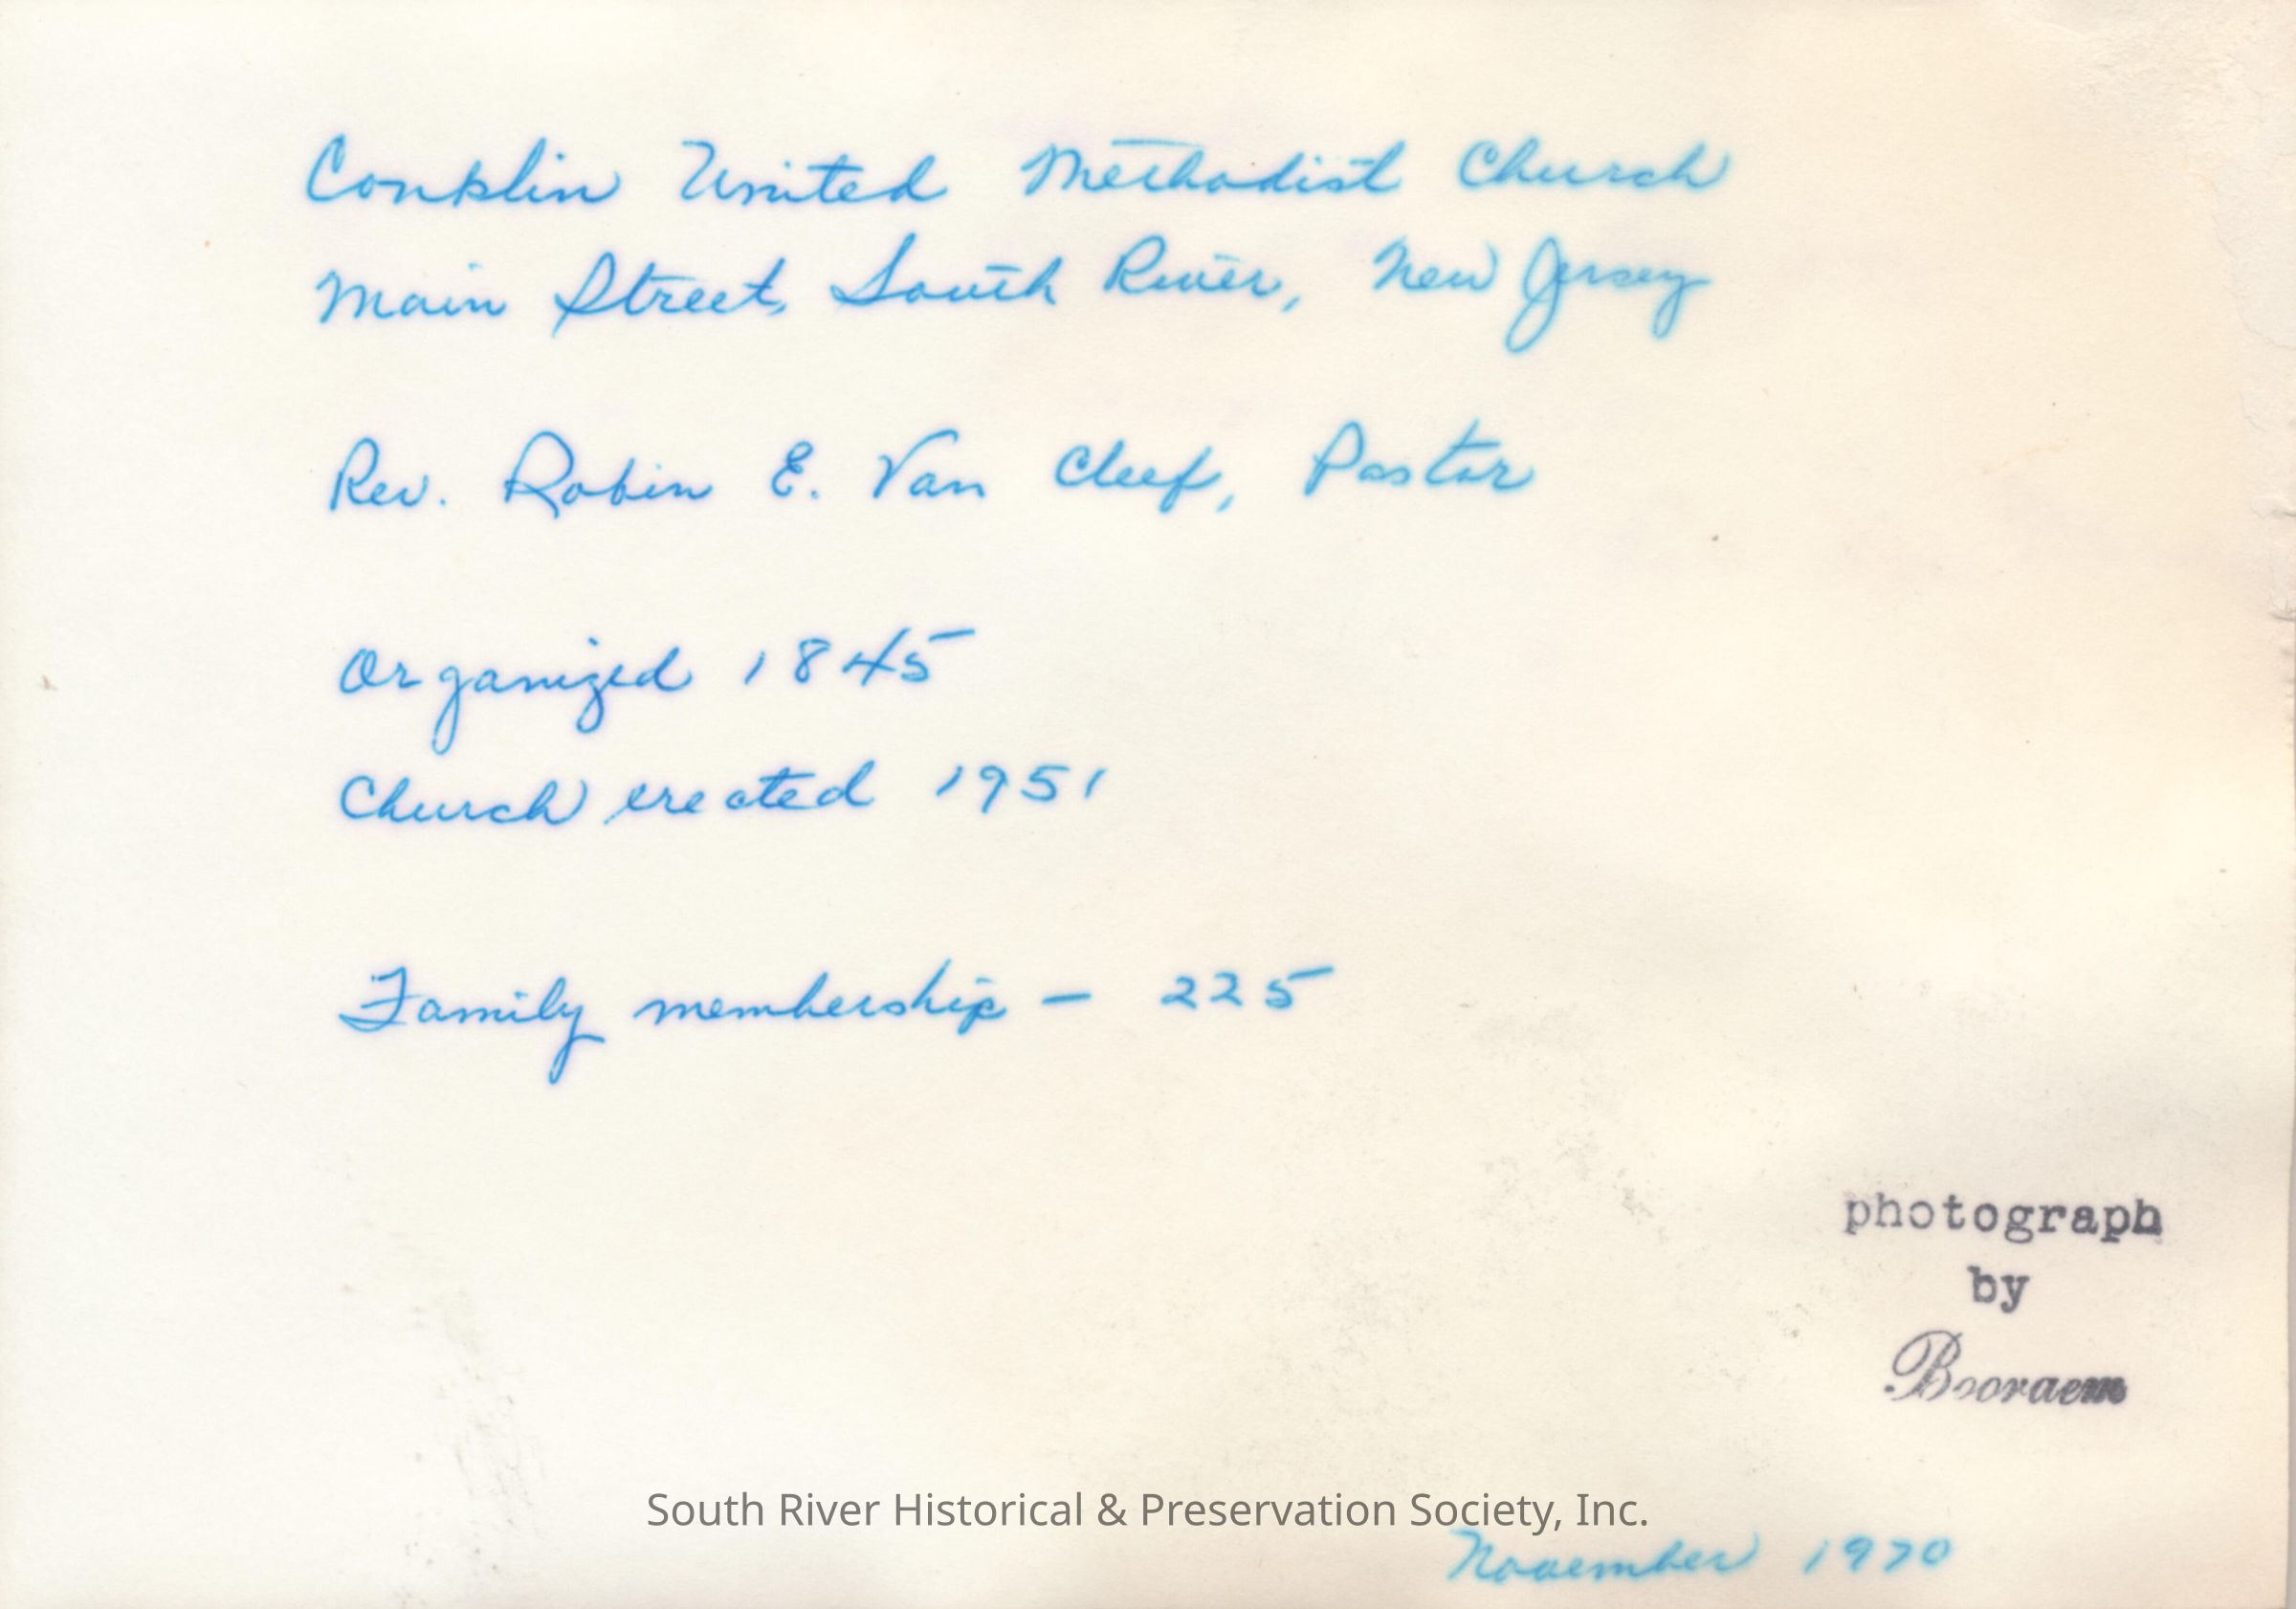 Conklin United Methodist Church
Main Street, South River, New Jersey
Rev. Robin E. Van Cleef, Pastor
Organized 1845
Church erected 1951
Family membership - 225
photograph
by
Booraem
South River Historical & Preservation Society, Inc.
November 1970